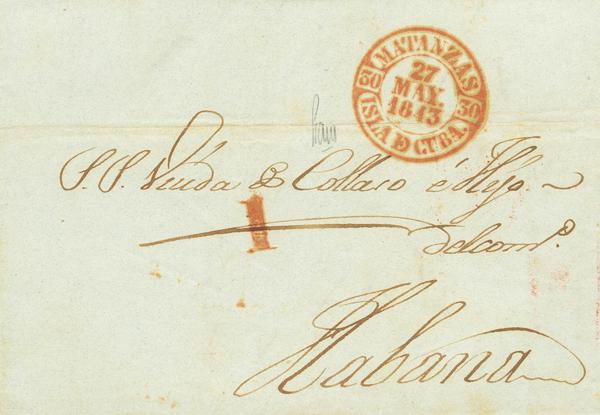 MATANZAS
30 27 30
MAY.
1843
ISLA D CUBA.
S. S. Viuda de Collaso é Hijo
1
del com.º
Habana